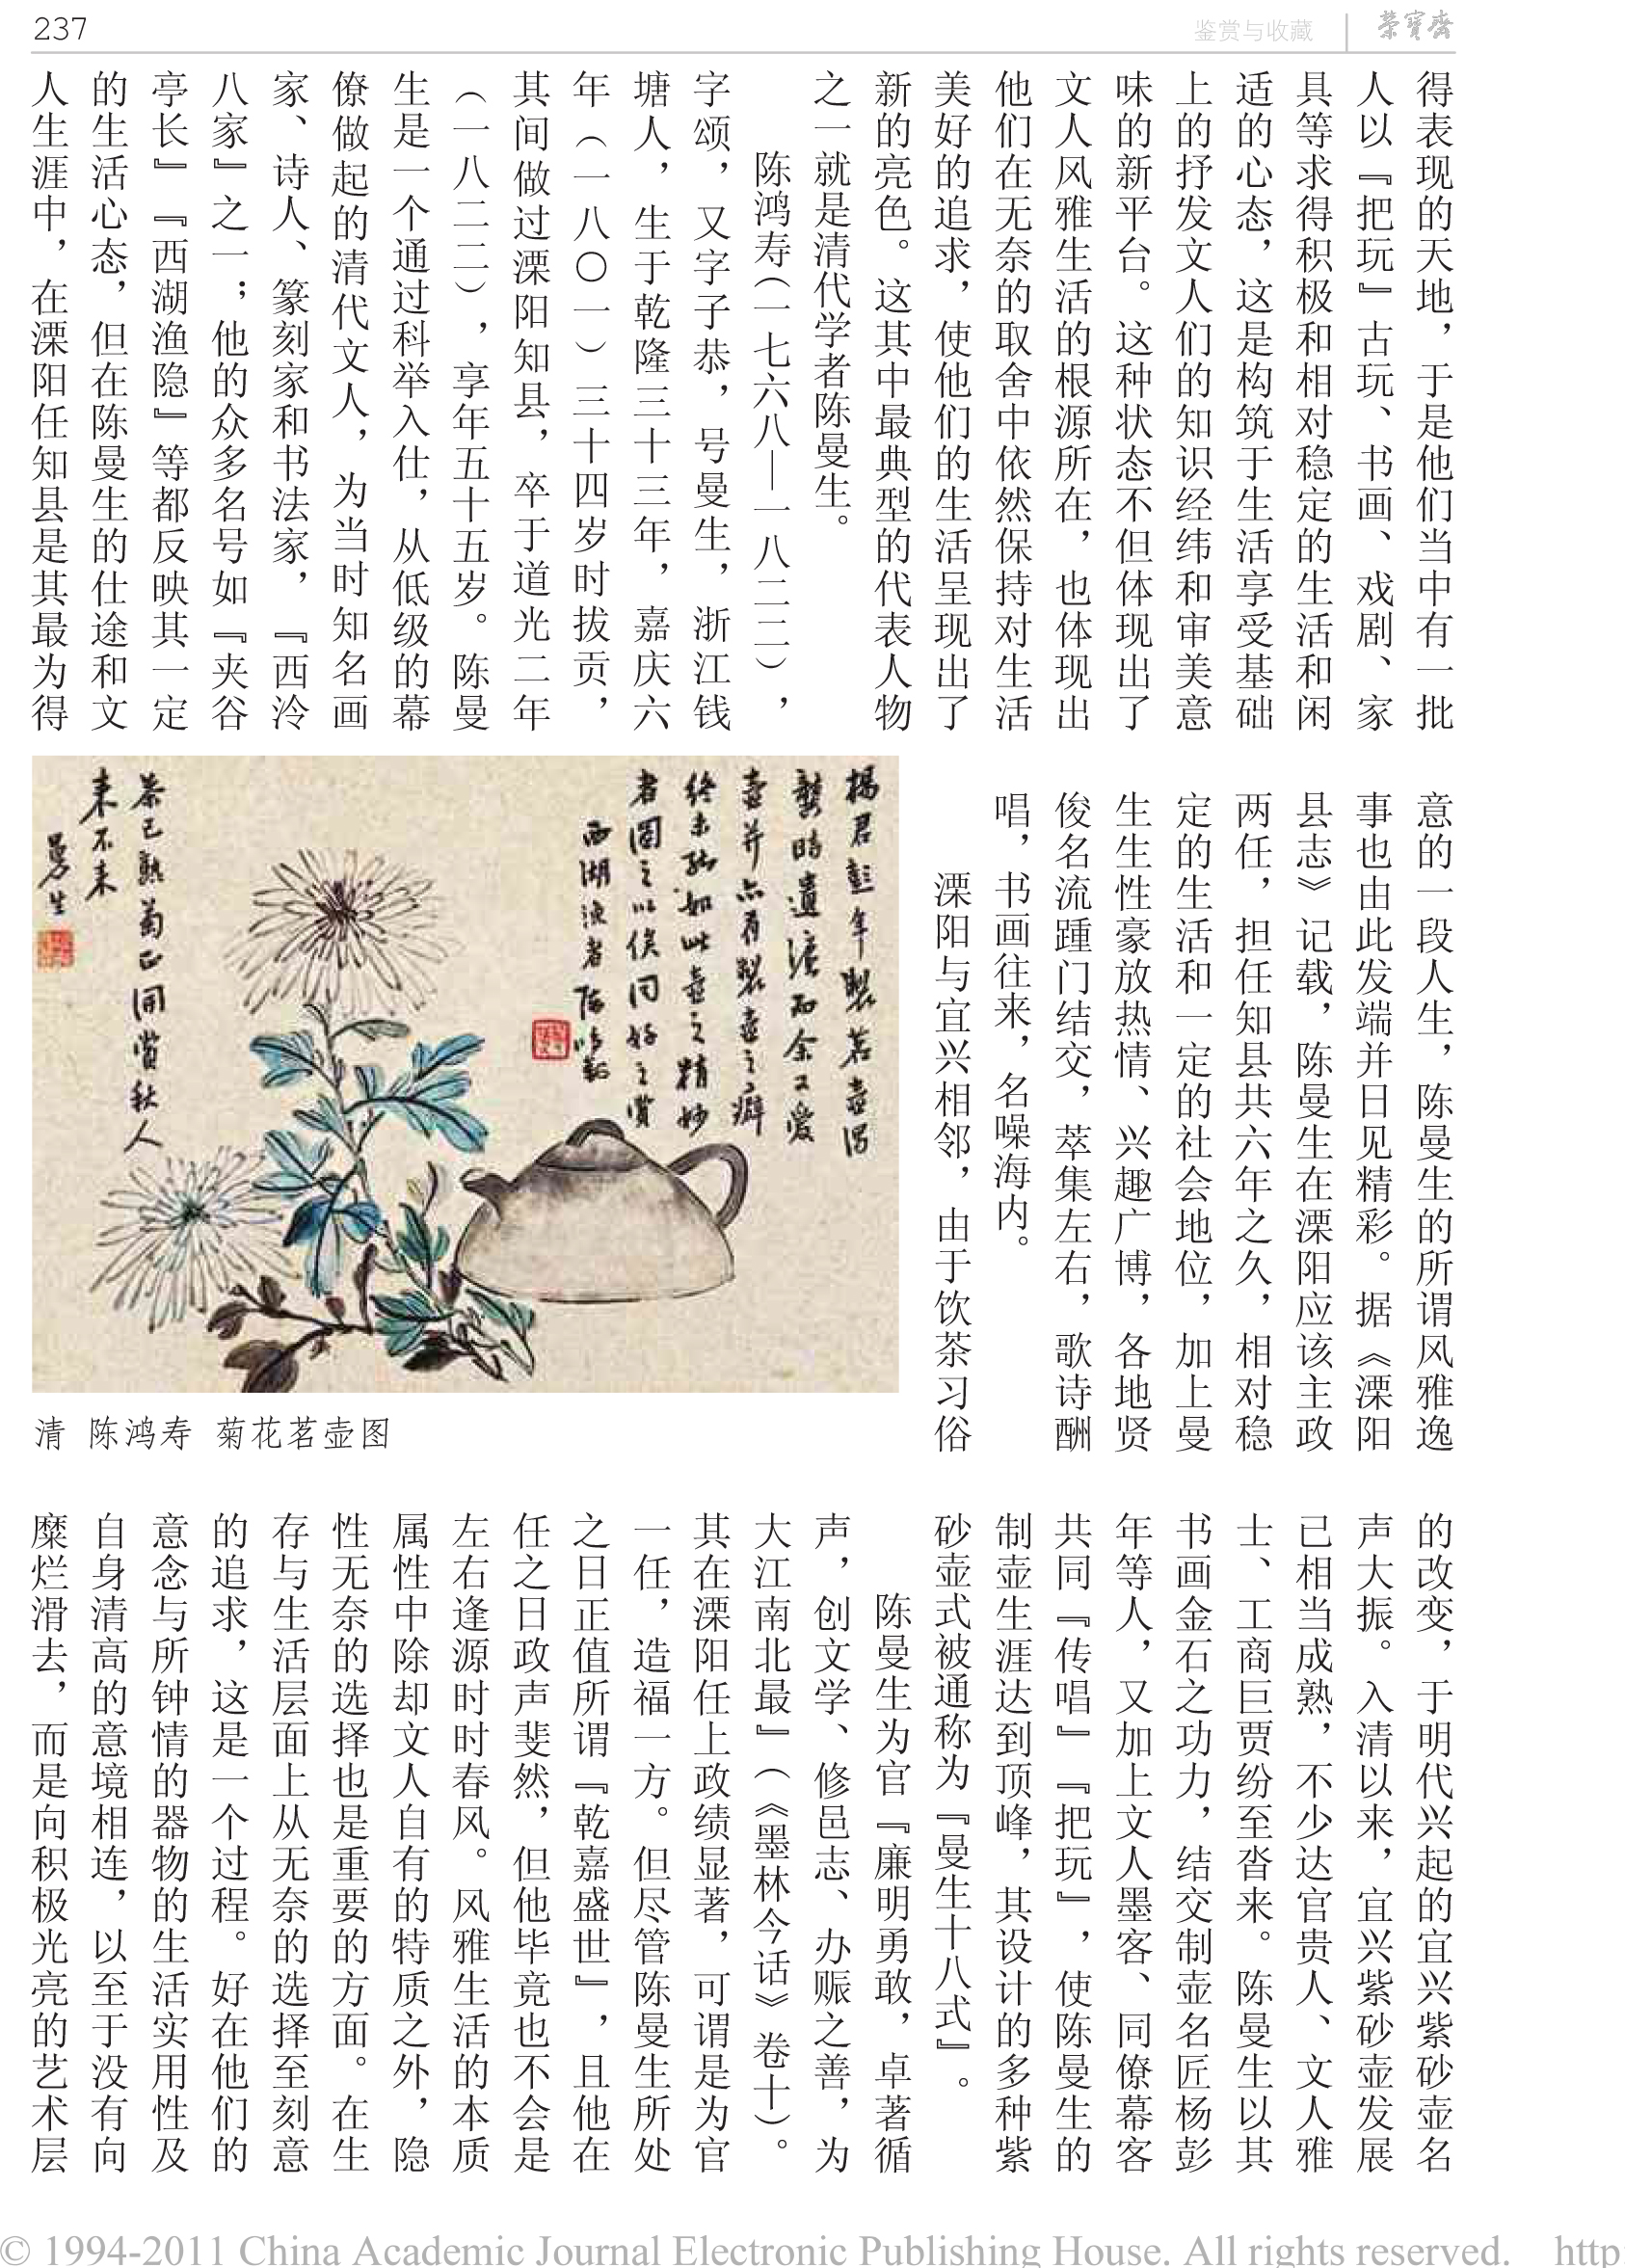 237
鉴赏与收藏
荣宝斋
得表现的天地，于是他们当中有一批
人以『把玩』古玩、书画、戏剧、家
具等求得积极和相对稳定的生活和闲
适的心态，这是构筑于生活享受基础
上的抒发文人们的知识经纬和审美意
味的新平台。这种状态不但体现出了
文人风雅生活的根源所在，也体现出
他们在无奈的取舍中依然保持对生活
美好的追求，使他们的生活呈现出了
新的亮色。这其中最典型的代表人物
之一就是清代学者陈曼生。
陈鸿寿（一七六八—一八二二），
字颂，又字子恭，号曼生，浙江钱
塘人，生于乾隆三十三年，嘉庆六
年（一八〇一）三十四岁时拔贡，
其间做过溧阳知县，卒于道光二年
（一八二二），享年五十五岁。陈曼
生是一个通过科举入仕，从低级的幕
僚做起的清代文人，为当时知名画
家、诗人、篆刻家和书法家，『西泠
八家』之一；他的众多名号如『夹谷
亭长』『西湖渔隐』等都反映其一定
的生活心态，但在陈曼生的仕途和文
人生涯中，在溧阳任知县是其最为得
意的一段人生，陈曼生的所谓风雅逸
事也由此发端并日见精彩。据《溧阳
县志》记载，陈曼生在溧阳应该主政
两任，担任知县共六年之久，相对稳
定的生活和一定的社会地位，加上曼
生生性豪放热情、兴趣广博，各地贤
俊名流踵门结交，萃集左右，歌诗酬
唱，书画往来，名噪海内。
溧阳与宜兴相邻，由于饮茶习俗
楊君彭年製茗壺得
龔時遺法而余又愛
壺并亦有製壺之癖
終未能如此壺之精妙
者圖之以俟同好之賞
西湖漁者陳鴻壽
茶已熟菊正開賞秋人
来不来
曼生
清 陈鸿寿 菊花茗壶图
的改变，于明代兴起的宜兴紫砂壶名
声大振。入清以来，宜兴紫砂壶发展
已相当成熟，不少达官贵人、文人雅
士、工商巨贾纷至沓来。陈曼生以其
书画金石之功力，结交制壶名匠杨彭
年等人，又加上文人墨客、同僚幕客
共同『传唱』『把玩』，使陈曼生的
制壶生涯达到顶峰，其设计的多种紫
砂壶式被通称为『曼生十八式』。
陈曼生为官『廉明勇敢，卓著循
声，创文学、修邑志、办赈之善，为
大江南北最』（《墨林今话》卷十）。
其在溧阳任上政绩显著，可谓是为官
一任，造福一方。但尽管陈曼生所处
之日正值所谓『乾嘉盛世』，且他在
任之日政声斐然，但他毕竟也不会是
左右逢源时时春风。风雅生活的本质
属性中除却文人自有的特质之外，隐
性无奈的选择也是重要的方面。在生
存与生活层面上从无奈的选择至刻意
的追求，这是一个过程。好在他们的
意念与所钟情的器物的生活实用性及
自身清高的意境相连，以至于没有向
糜烂滑去，而是向积极光亮的艺术层
© 1994-2011 China Academic Journal Electronic Publishing House. All rights reserved. http: